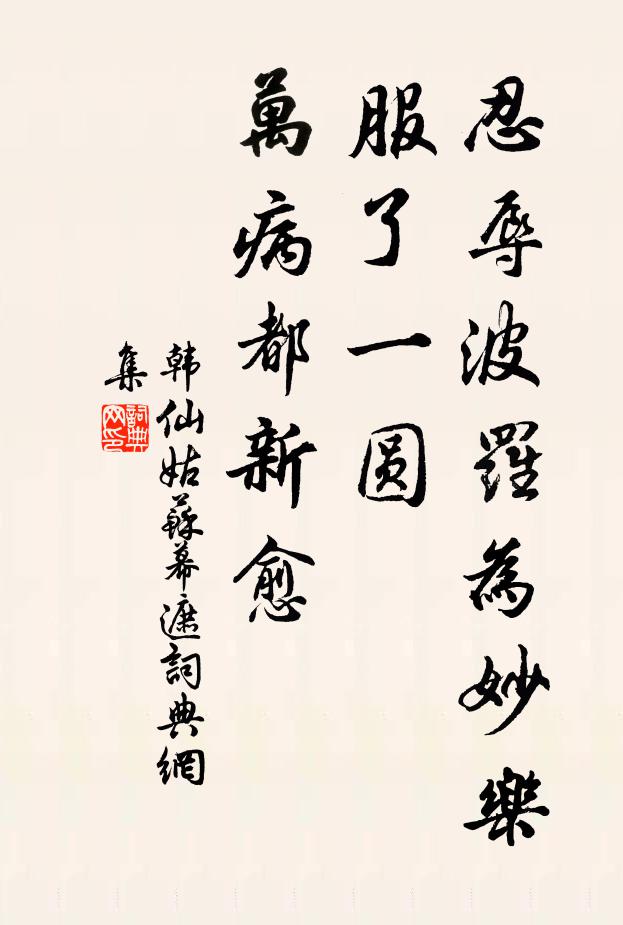 忍辱波羅為妙樂
服了一圆
萬病都新愈
韩仙姑蘇幕遮詞典網
集
詞典網印